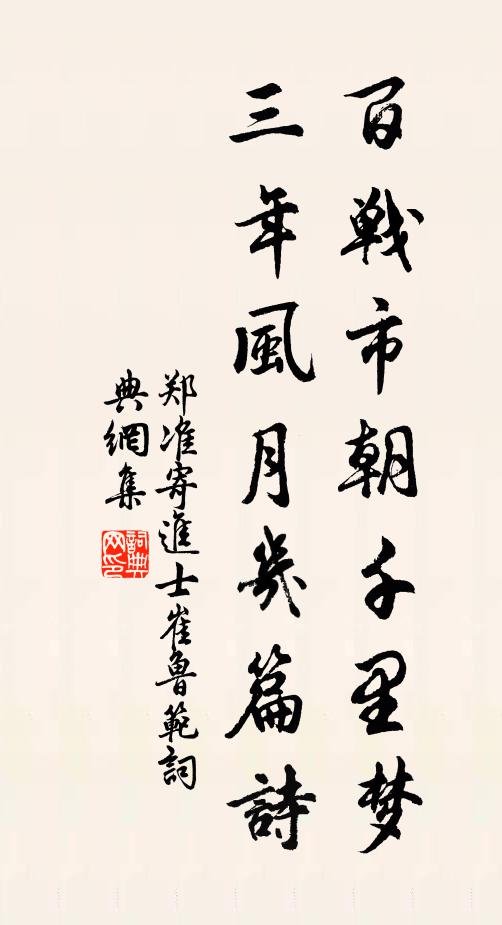 百戦市朝千里梦
三年風月幾篇詩
郑准寄進士崔魯範詞
典網集
詞典
网印